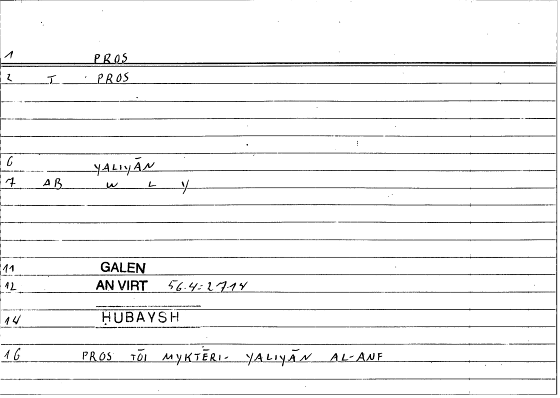 1 PROS
2 T PROS
6 YALIYĀN
7 AB W L Y
11 GALEN
12 AN VIRT 56.4:2714
14 ḤUBAYSH
16 PROS TŌI MYKTĒRI- YALIYĀN AL-ANF